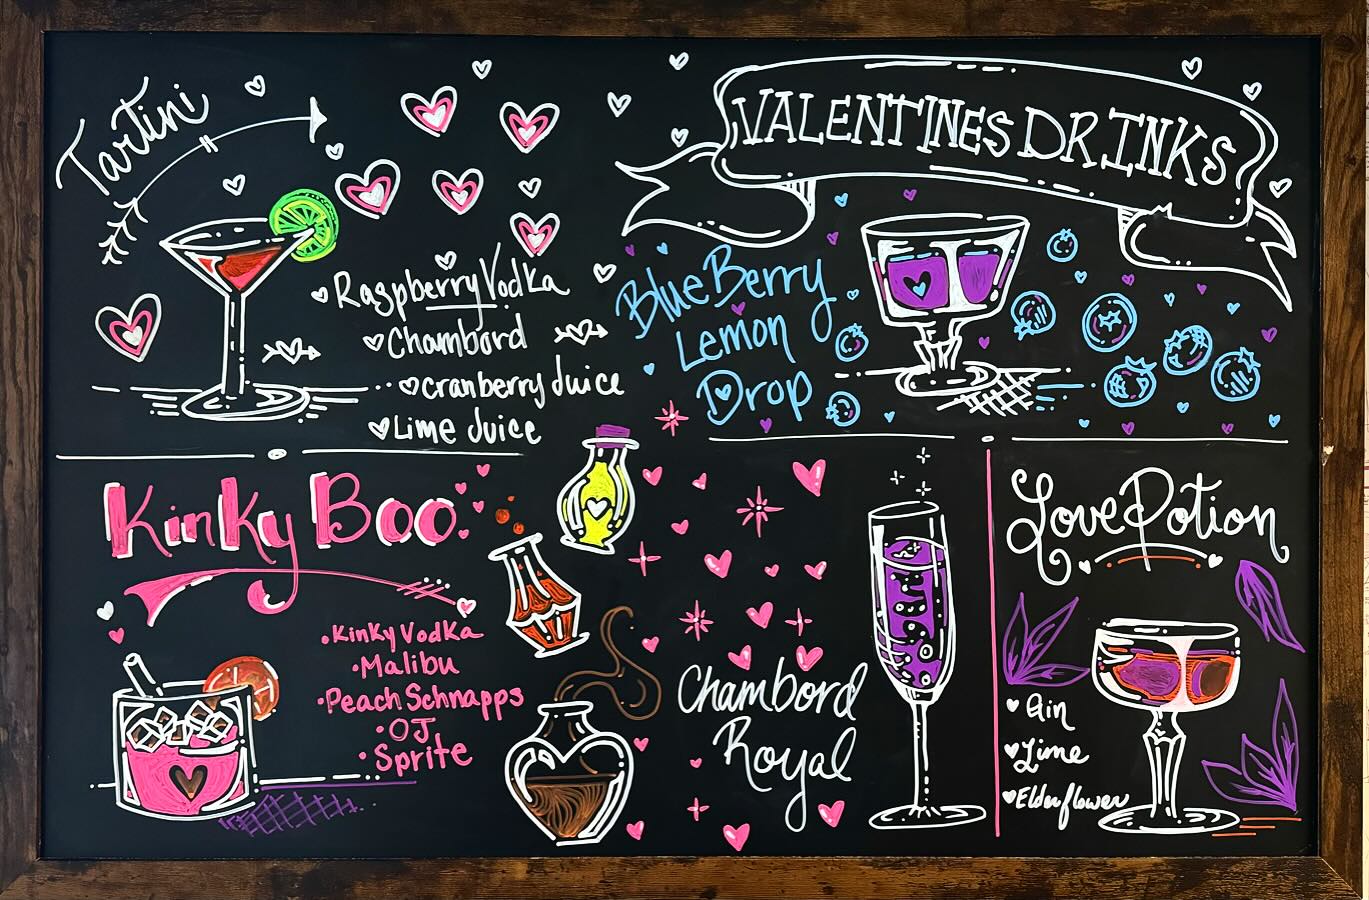 VALENTINES DRINKS
Tartini
Raspberry Vodka
Chambord
cranberry Juice
Lime Juice
BlueBerry
Lemon
Drop
Kinky Boo
Kinky Vodka
Malibu
Peach Schnapps
OJ
Sprite
Chambord
Royal
Love Potion
Gin
Lime
Elderflower